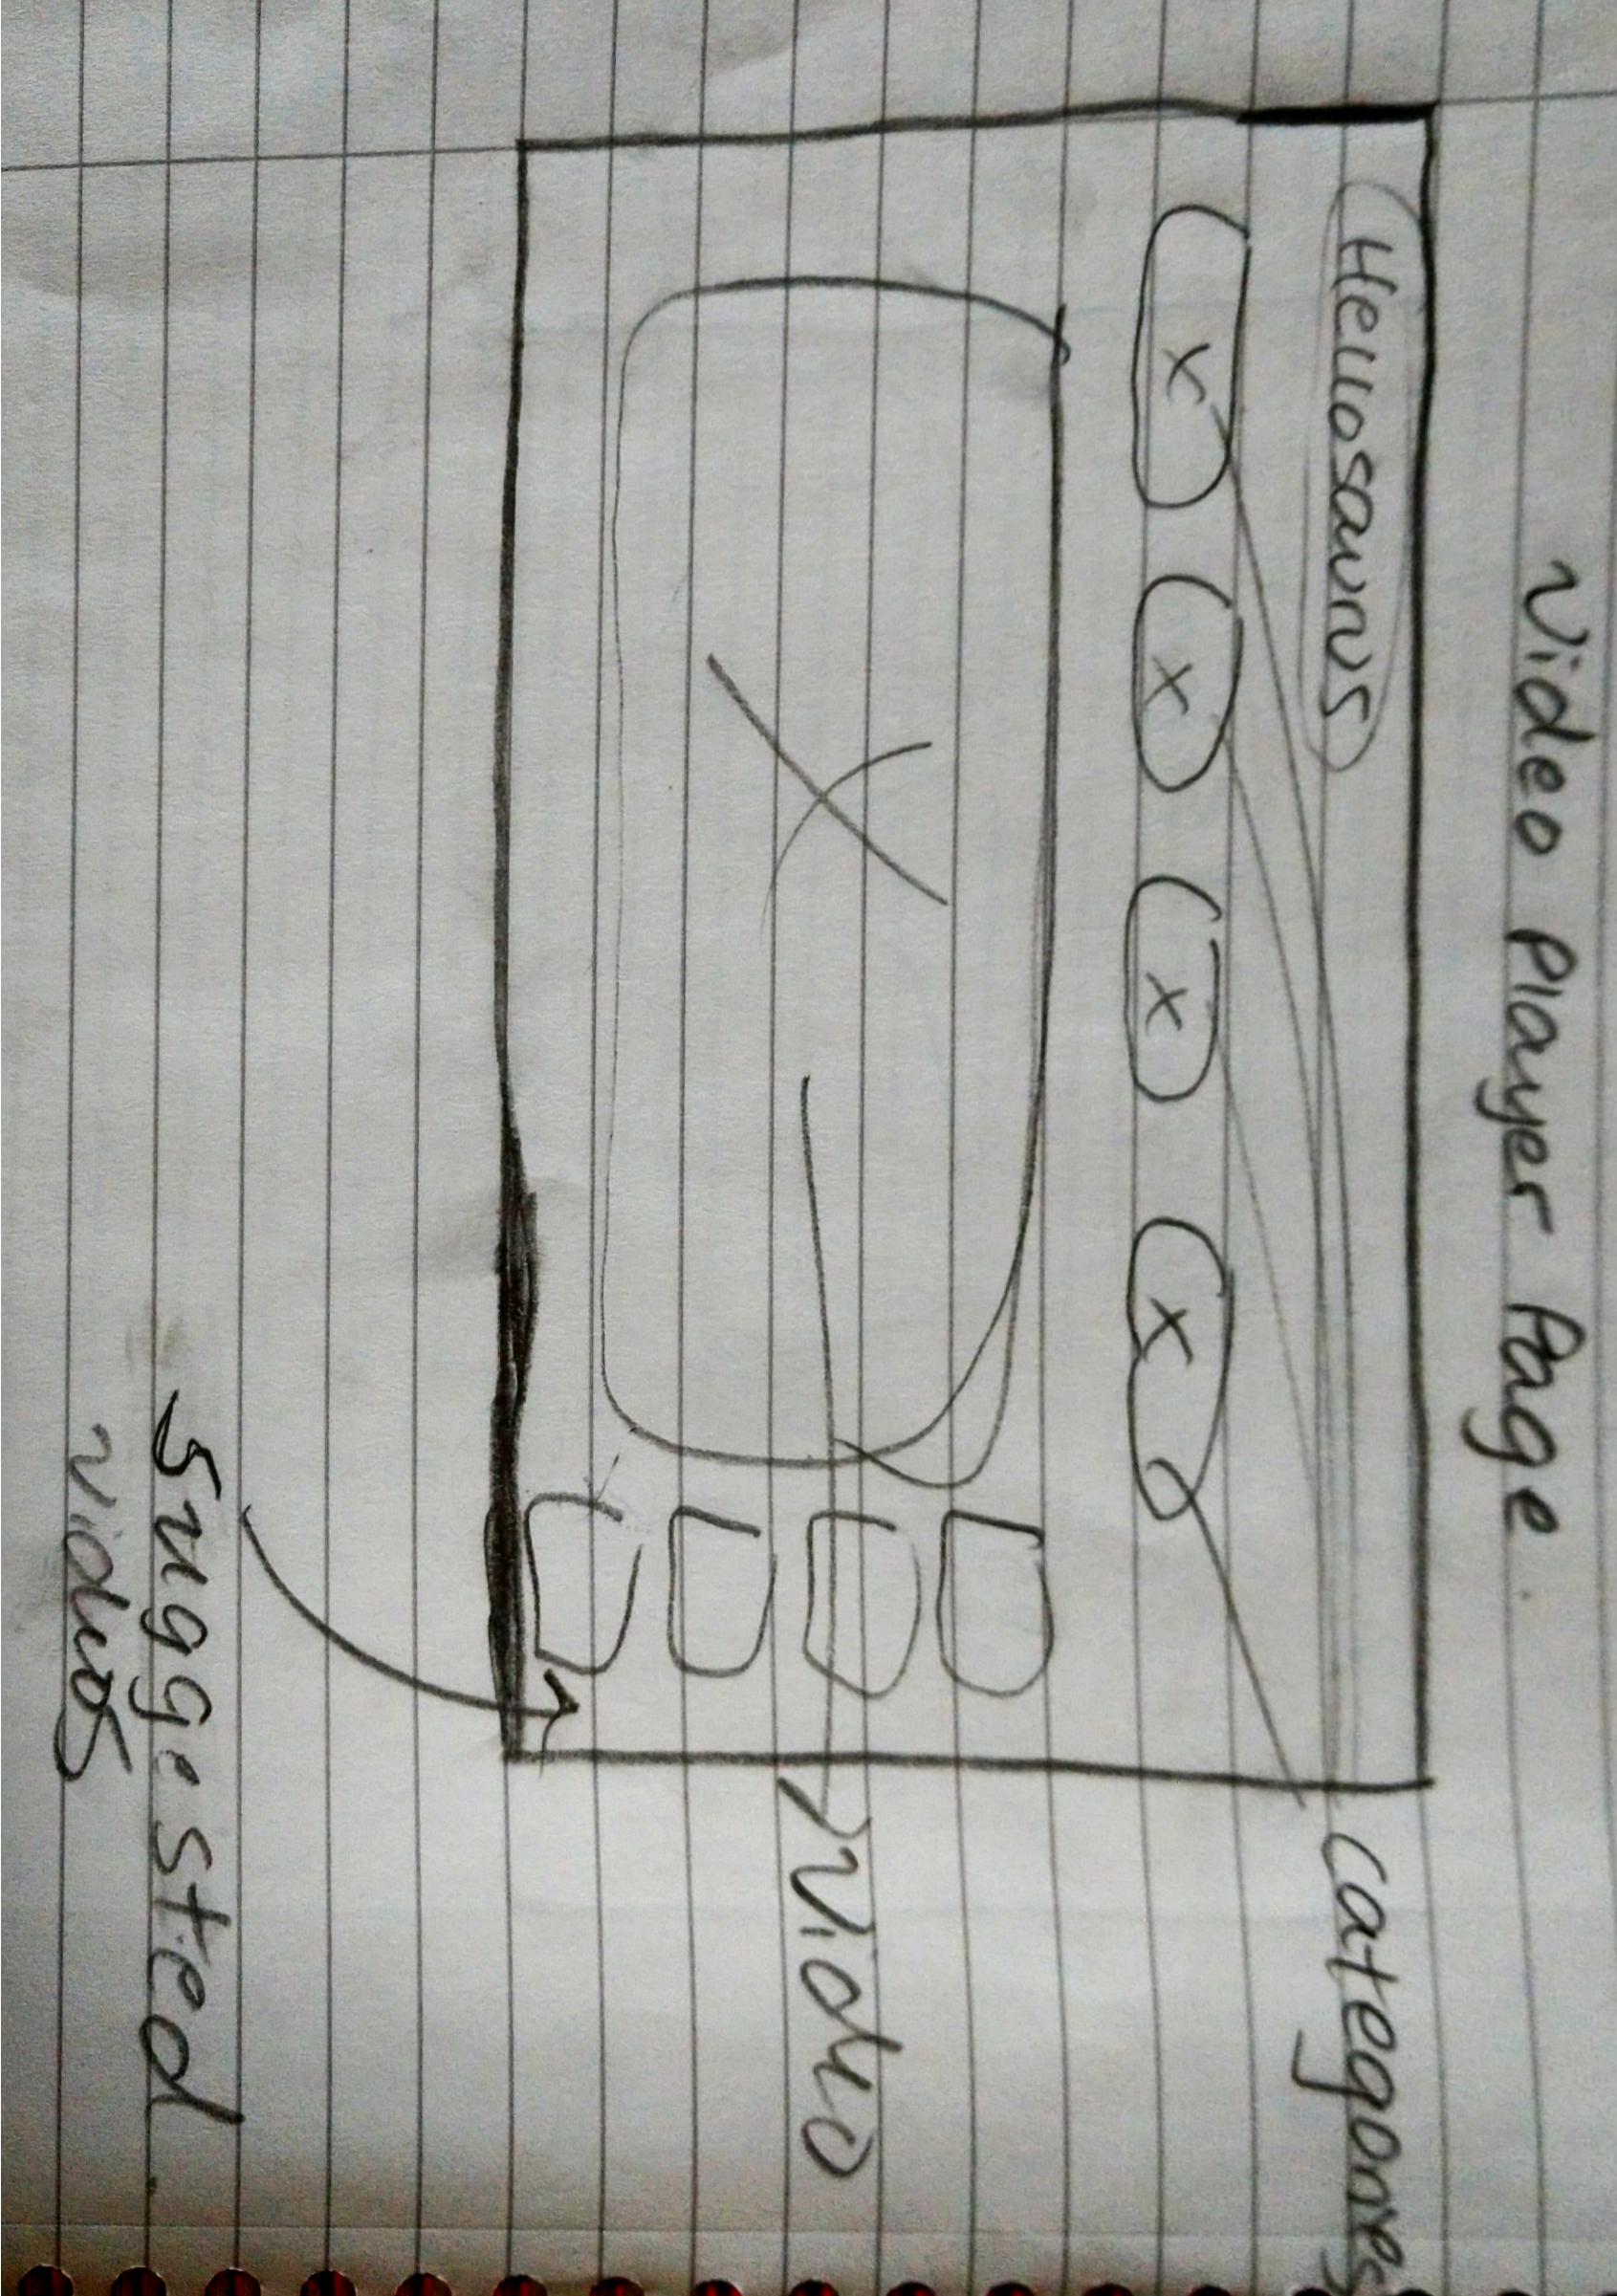 Video Player Page.
Hellosaurus
categories
x x x x
X
video
suggested.
videos